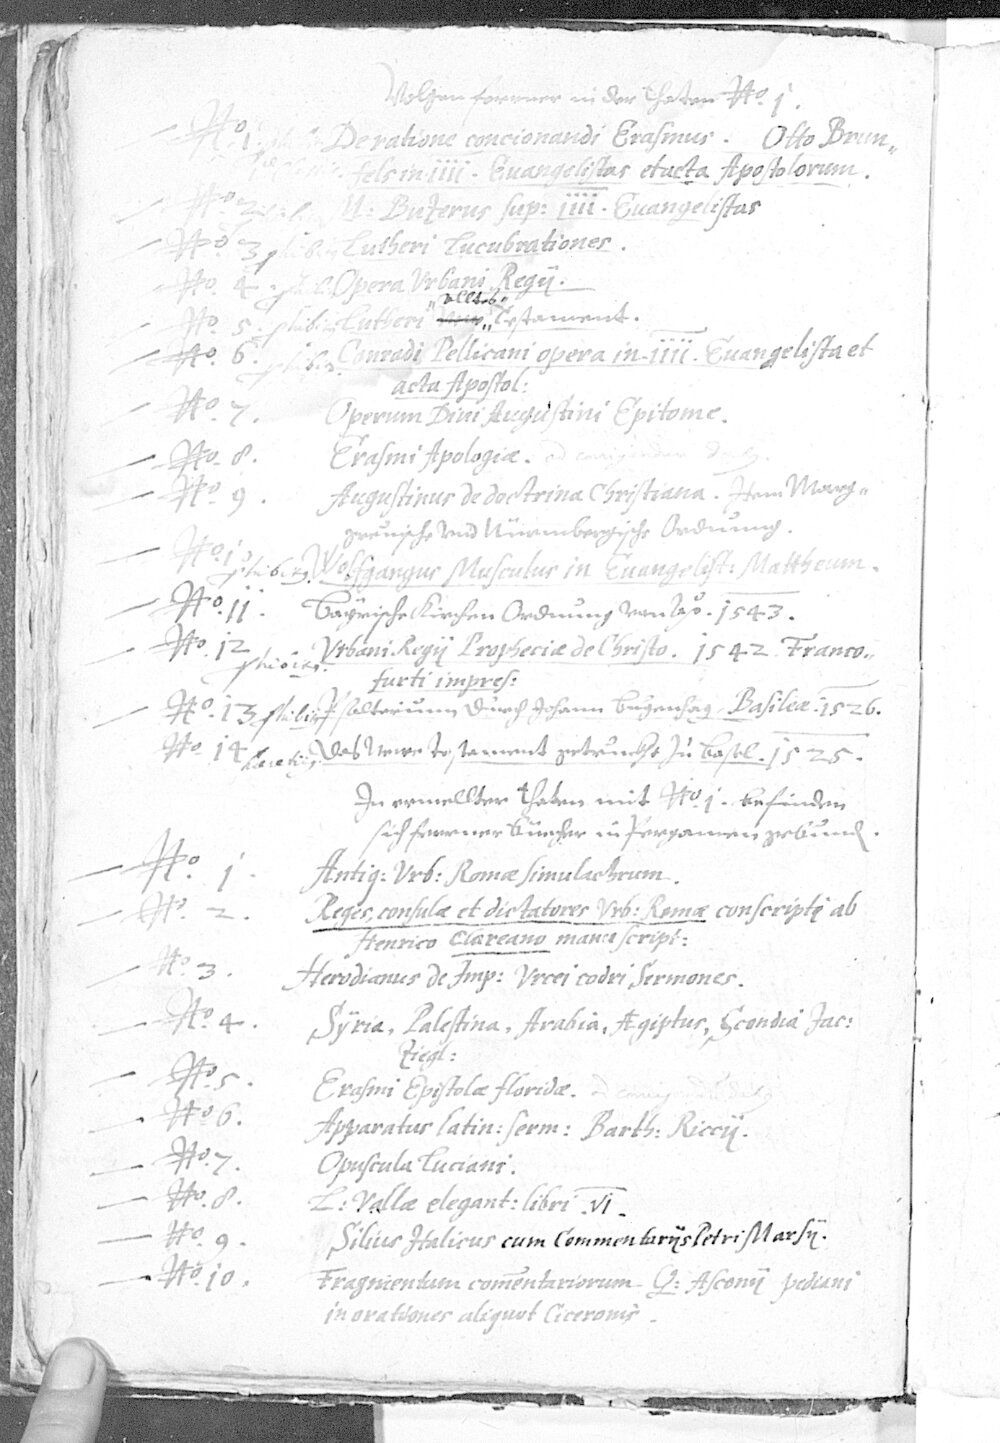 Volgen ferrner in der Thaten No. 1.
No. 1. De ratione concionandi Erasmus. Otto Brun„
fels in iiii. Euangelistas et acta Apostolorum.
No. 2 M: Buzerus sup: iiii. Euangelistas
No. 3 phibiz Lutheri Lucubrationes.
No. 4. Opera Vrbani Regij.
„alltes„
No. 5. phibiz Lutheri „Testament.
No. 6. phibiz. Conradi Pellicani opera in iiii. Euangelista et
acta Apostol:
No. 7. Operum Diui Augustini Epitome.
No. 8. Erasmi Apologiæ.
No. 9. Augustinus de doctrina Christiana. Item Marg„
greuische vnd Nürmbergische Ordnung.
No. 10 phibiz. Wolfgangus Musculus in Euangelist: Mattheum.
No. 11. Bayrische Kirchen Ordnung von Ao. 1543.
No. 12 phibiz. Vrbani Regij Propheciæ de Christo. 1542. Franco„
furti impres:
No. 13 phibiz Psalterium durch Johann Bugenhag. Basileæ. 1526.
No. 14 Das Newe Testament getruckht zu Basel. 1525.
In ermellter Thaten mit No. 1. befinden
sich ferrner Büecher in Pergamen gebund.
No. 1. Antiq: Vrb: Romæ simulachrum.
No. 2. Reges, consulæ et dictatores Vrb: Romæ conscripti ab
Henrico Clareano manuscript:
No. 3. Herodianus de Imp: Vrcei codri Sermones.
No. 4. Sÿria, Palestina, Arabia, Ægiptus, Scondia Jac:
Ziegl:
No. 5. Erasmi Epistolæ floridæ.
No. 6. Apparatus latin: serm: Barth: Riccij.
No. 7. Opuscula Luciani.
No. 8. L: Vallæ elegant: libri .VI.
No. 9. Silius Italicus cum Commentarijs Petri Marsij.
No. 10. Fragmentum com̄entariorum Q: Asconij pediani
in orationes aliquot Ciceronis.